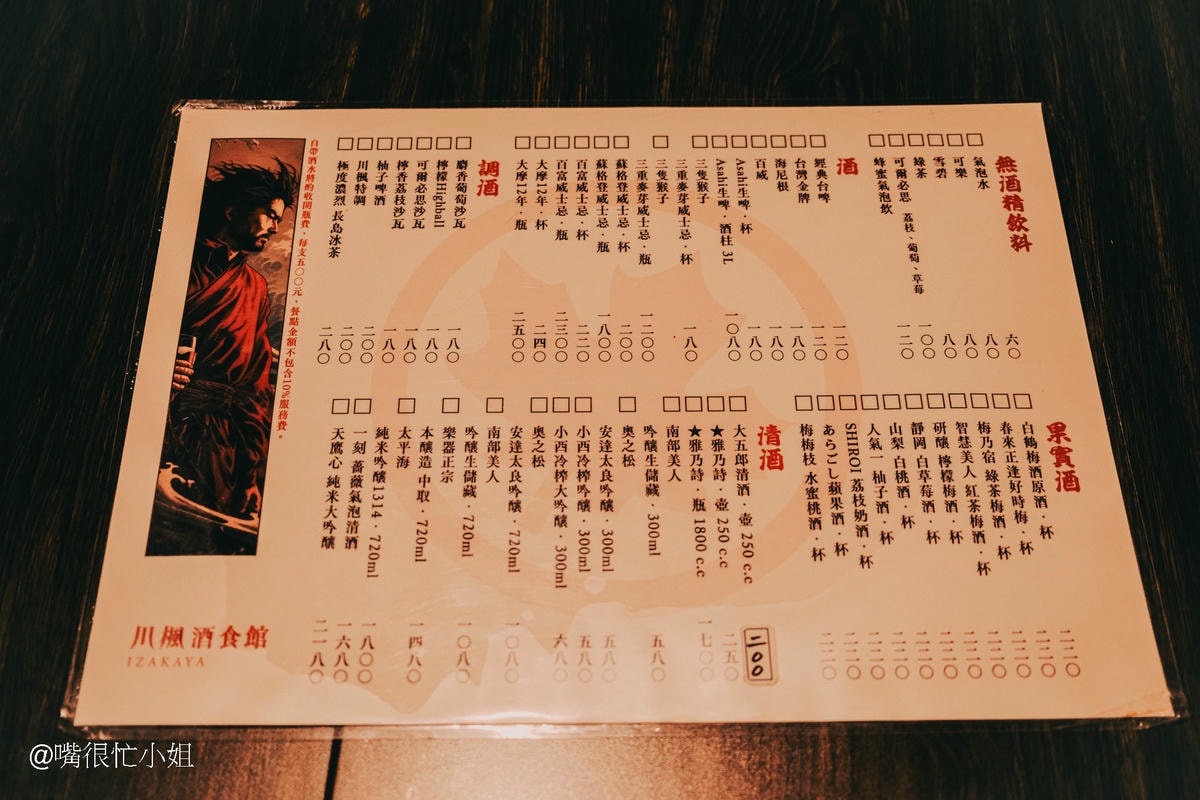 無酒精飲料
氣泡水 六〇
可樂 八〇
雪碧 八〇
綠茶 八〇
可爾必思 荔枝、葡萄、草莓 一〇〇
蜂蜜氣泡飲 一二〇
酒
經典台啤 一二〇
台灣金牌 一二〇
海尼根 一八〇
百威 一八〇
Asahi生啤·杯 一八〇
Asahi生啤·酒柱 3L 一〇八〇
三隻猴子
三重麥芽威士忌·杯 一八〇
三隻猴子
三重麥芽威士忌·瓶 一二〇〇
蘇格登威士忌·杯 二〇〇
蘇格登威士忌·瓶 一八〇〇
百富威士忌·杯 二二〇
百富威士忌·瓶 二三〇〇
大摩12年·杯 二四〇
大摩12年·瓶 二五〇〇
調酒
麝香葡萄沙瓦 一八〇
檸檬Highball 一八〇
可爾必思沙瓦 一八〇
檸香荔枝沙瓦 一八〇
柚子啤酒 二〇〇
川楓特調 二〇〇
極度濃烈 長島冰茶 二八〇
果實酒
白鶴梅酒原酒·杯 二二〇
春來正逢好時梅·杯 二二〇
梅乃宿 綠茶梅酒·杯 二二〇
智慧美人 紅茶梅酒·杯 二二〇
研釀 檸檬梅酒·杯 二二〇
靜岡 白草莓酒·杯 二二〇
山梨 白桃酒·杯 二二〇
人氣一 柚子酒·杯 二二〇
SHIROI 荔枝奶酒·杯 二二〇
あらごし蘋果酒·杯 二二〇
梅梅枝 水蜜桃酒·杯 二二〇
清酒
大五郎清酒·壺 250 c.c 二〇〇
★雅乃詩·壺 250 c.c 二五〇
★雅乃詩·瓶 1800 c.c 一七〇〇
南部美人
吟釀生儲藏·300ml 五八〇
奧之松
安達太良吟釀·300ml 五八〇
小西冷榨吟釀·300ml 五八〇
小西冷榨大吟釀·300ml 六八〇
奧之松
安達太良吟釀·720ml 一〇八〇
南部美人
吟釀生儲藏·720ml 一〇八〇
樂器正宗
本釀造 中取·720ml 一四八〇
太平海
純米吟釀1314·720ml 一八〇〇
一刻 薔薇氣泡清酒 一六八〇
天鷹心 純米大吟釀 二一八〇
自帶酒水將酌收開瓶費，每支五〇〇元，餐點金額不包含10%服務費。
川楓酒食館
IZAKAYA
@嘴很忙小姐